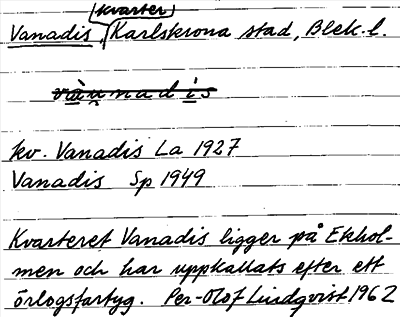 kvarter
Vanadis, Karlskrona stad, Blek. l.
vànnadis
kv. Vanadis La 1927
Vanadis Sp 1949
Kvarteret Vanadis ligger på Ekhol-
men och har uppkallats efter ett
örlogsfartyg. Per-Olof Lindqvist 1962